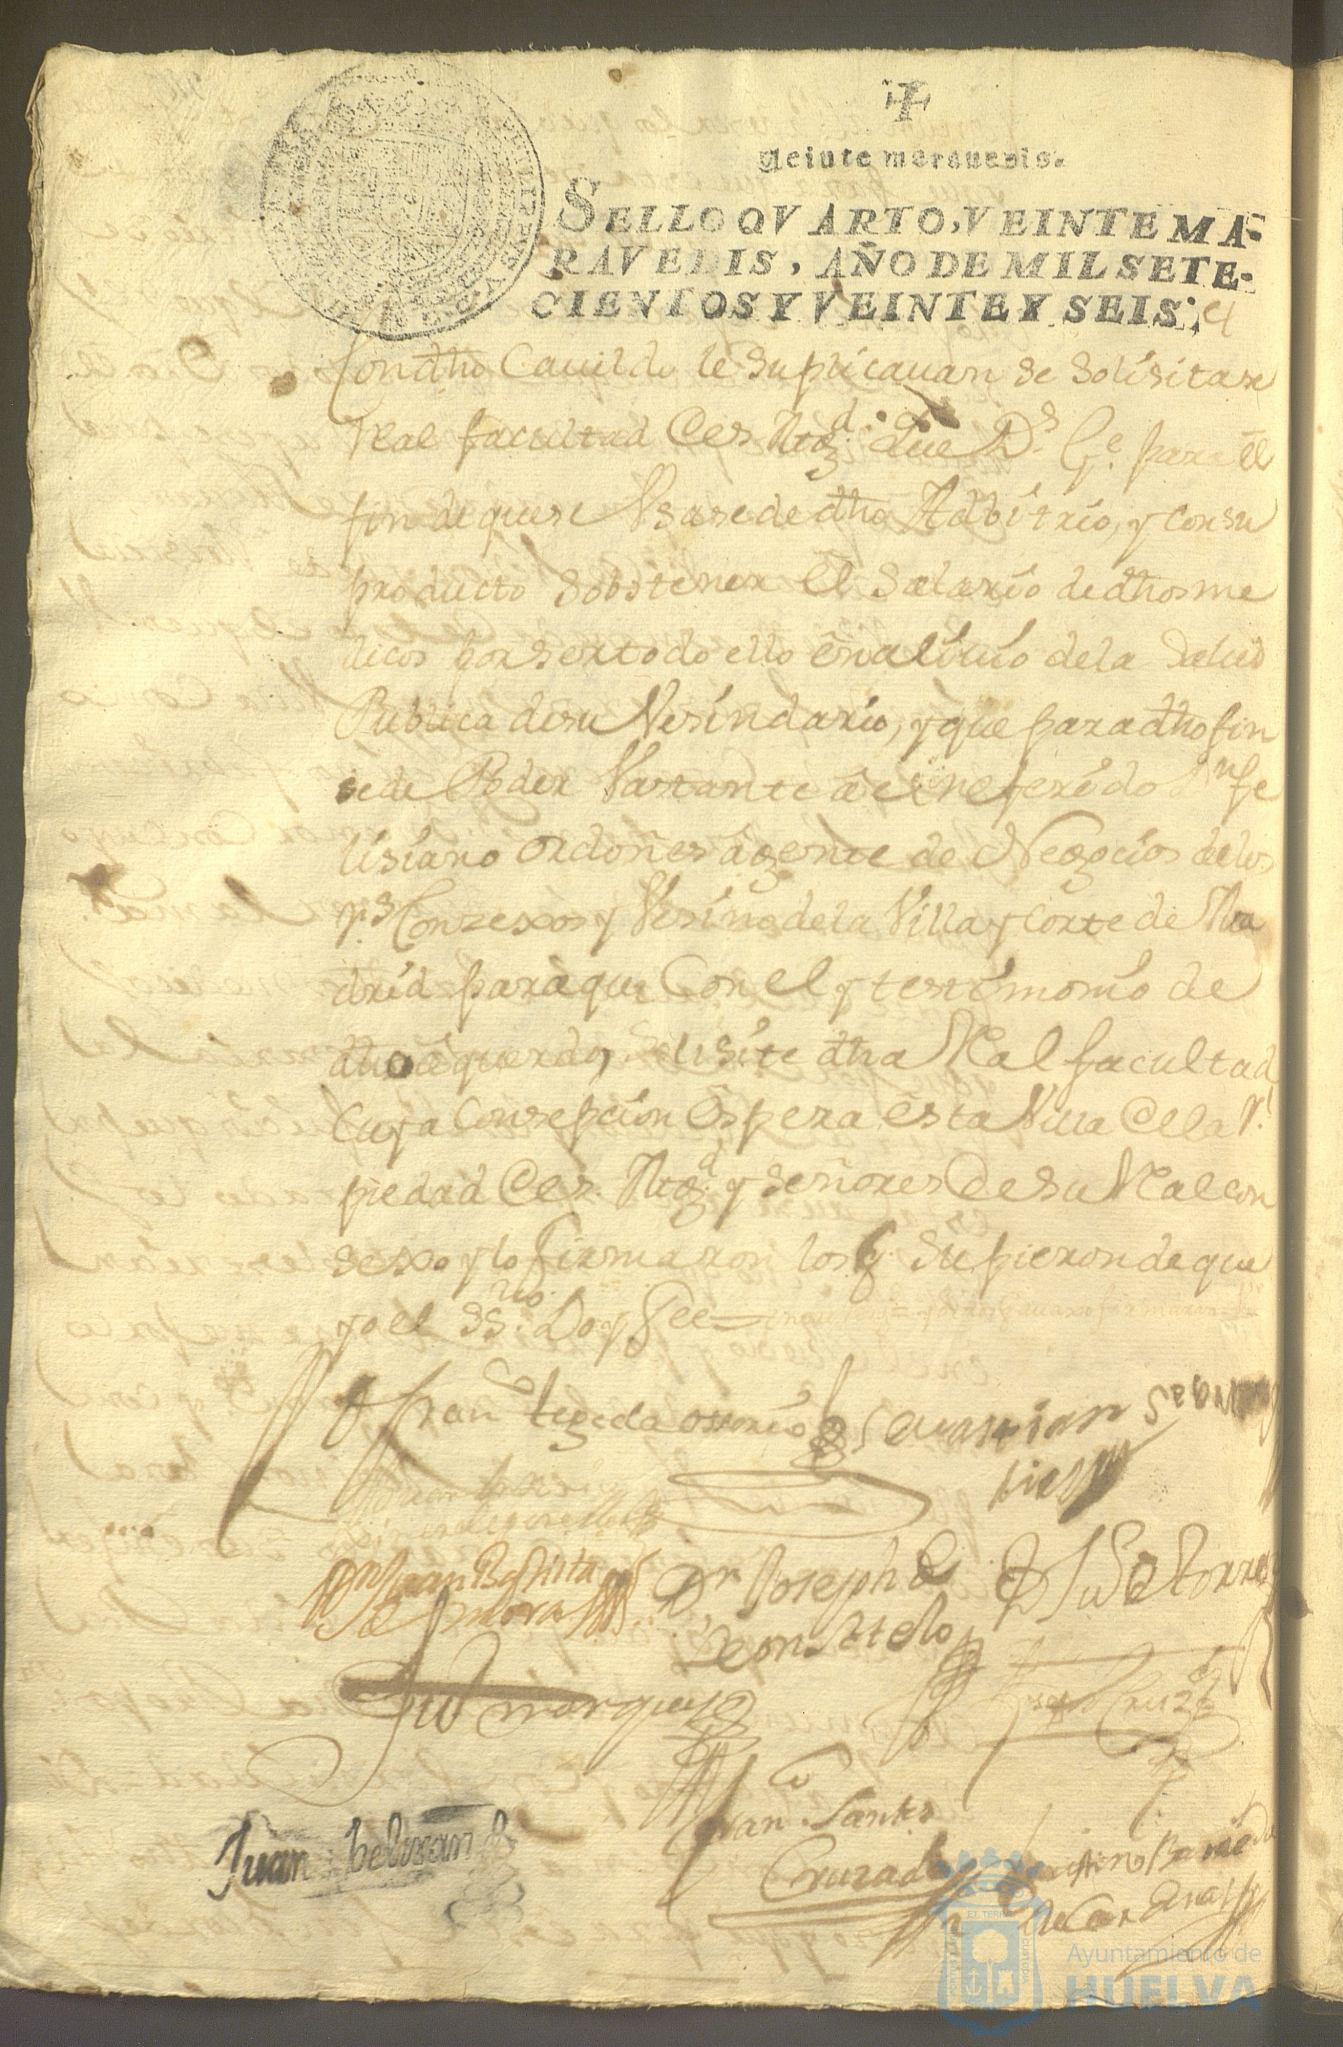 Veinte marauedis.
SELLO QVARTO, VEINTE MA-
RAVEDIS, AÑO DE MIL SETE-
CIENTOS Y VEINTE Y SEIS.
Con dho Cavildo le suplicavan se solisitase
Real facultad de s. Mag.d que D.s G.e para el
fin de que se Usase de dho Adbitrio, y con su
producto sobstener el salario de dhos me
dicos por ser todo ello en alivio de la salud
Publica de su Vesindario, y que para dho fin
se de Poder Vastante a el referido D.n fe
lisiano ordoñes agente de Negocios de los
r.s Conzexos y Vesino de la Villa y Corte de Ma
drid para que Con el y testimonio de
dho aquerdo, solisite dha Real facultad
Cuya Consepcion espera esta Villa de la r.l
piedad de s. Mag.d y señores de su Real con
sexo y lo firmaron los q supieron de que
yo el ss.no Doy fee=
fran.co tegeda ossorio
Sevastian
D.n Juan Baptista
de mora
D.n Joseph de
Leon Sotelo
D Ju de torres
Ju marques
Joseph Cruzdo
Juan beltran
fran.co Santos
Cruzado
Ayuntamiento de
HUELVA